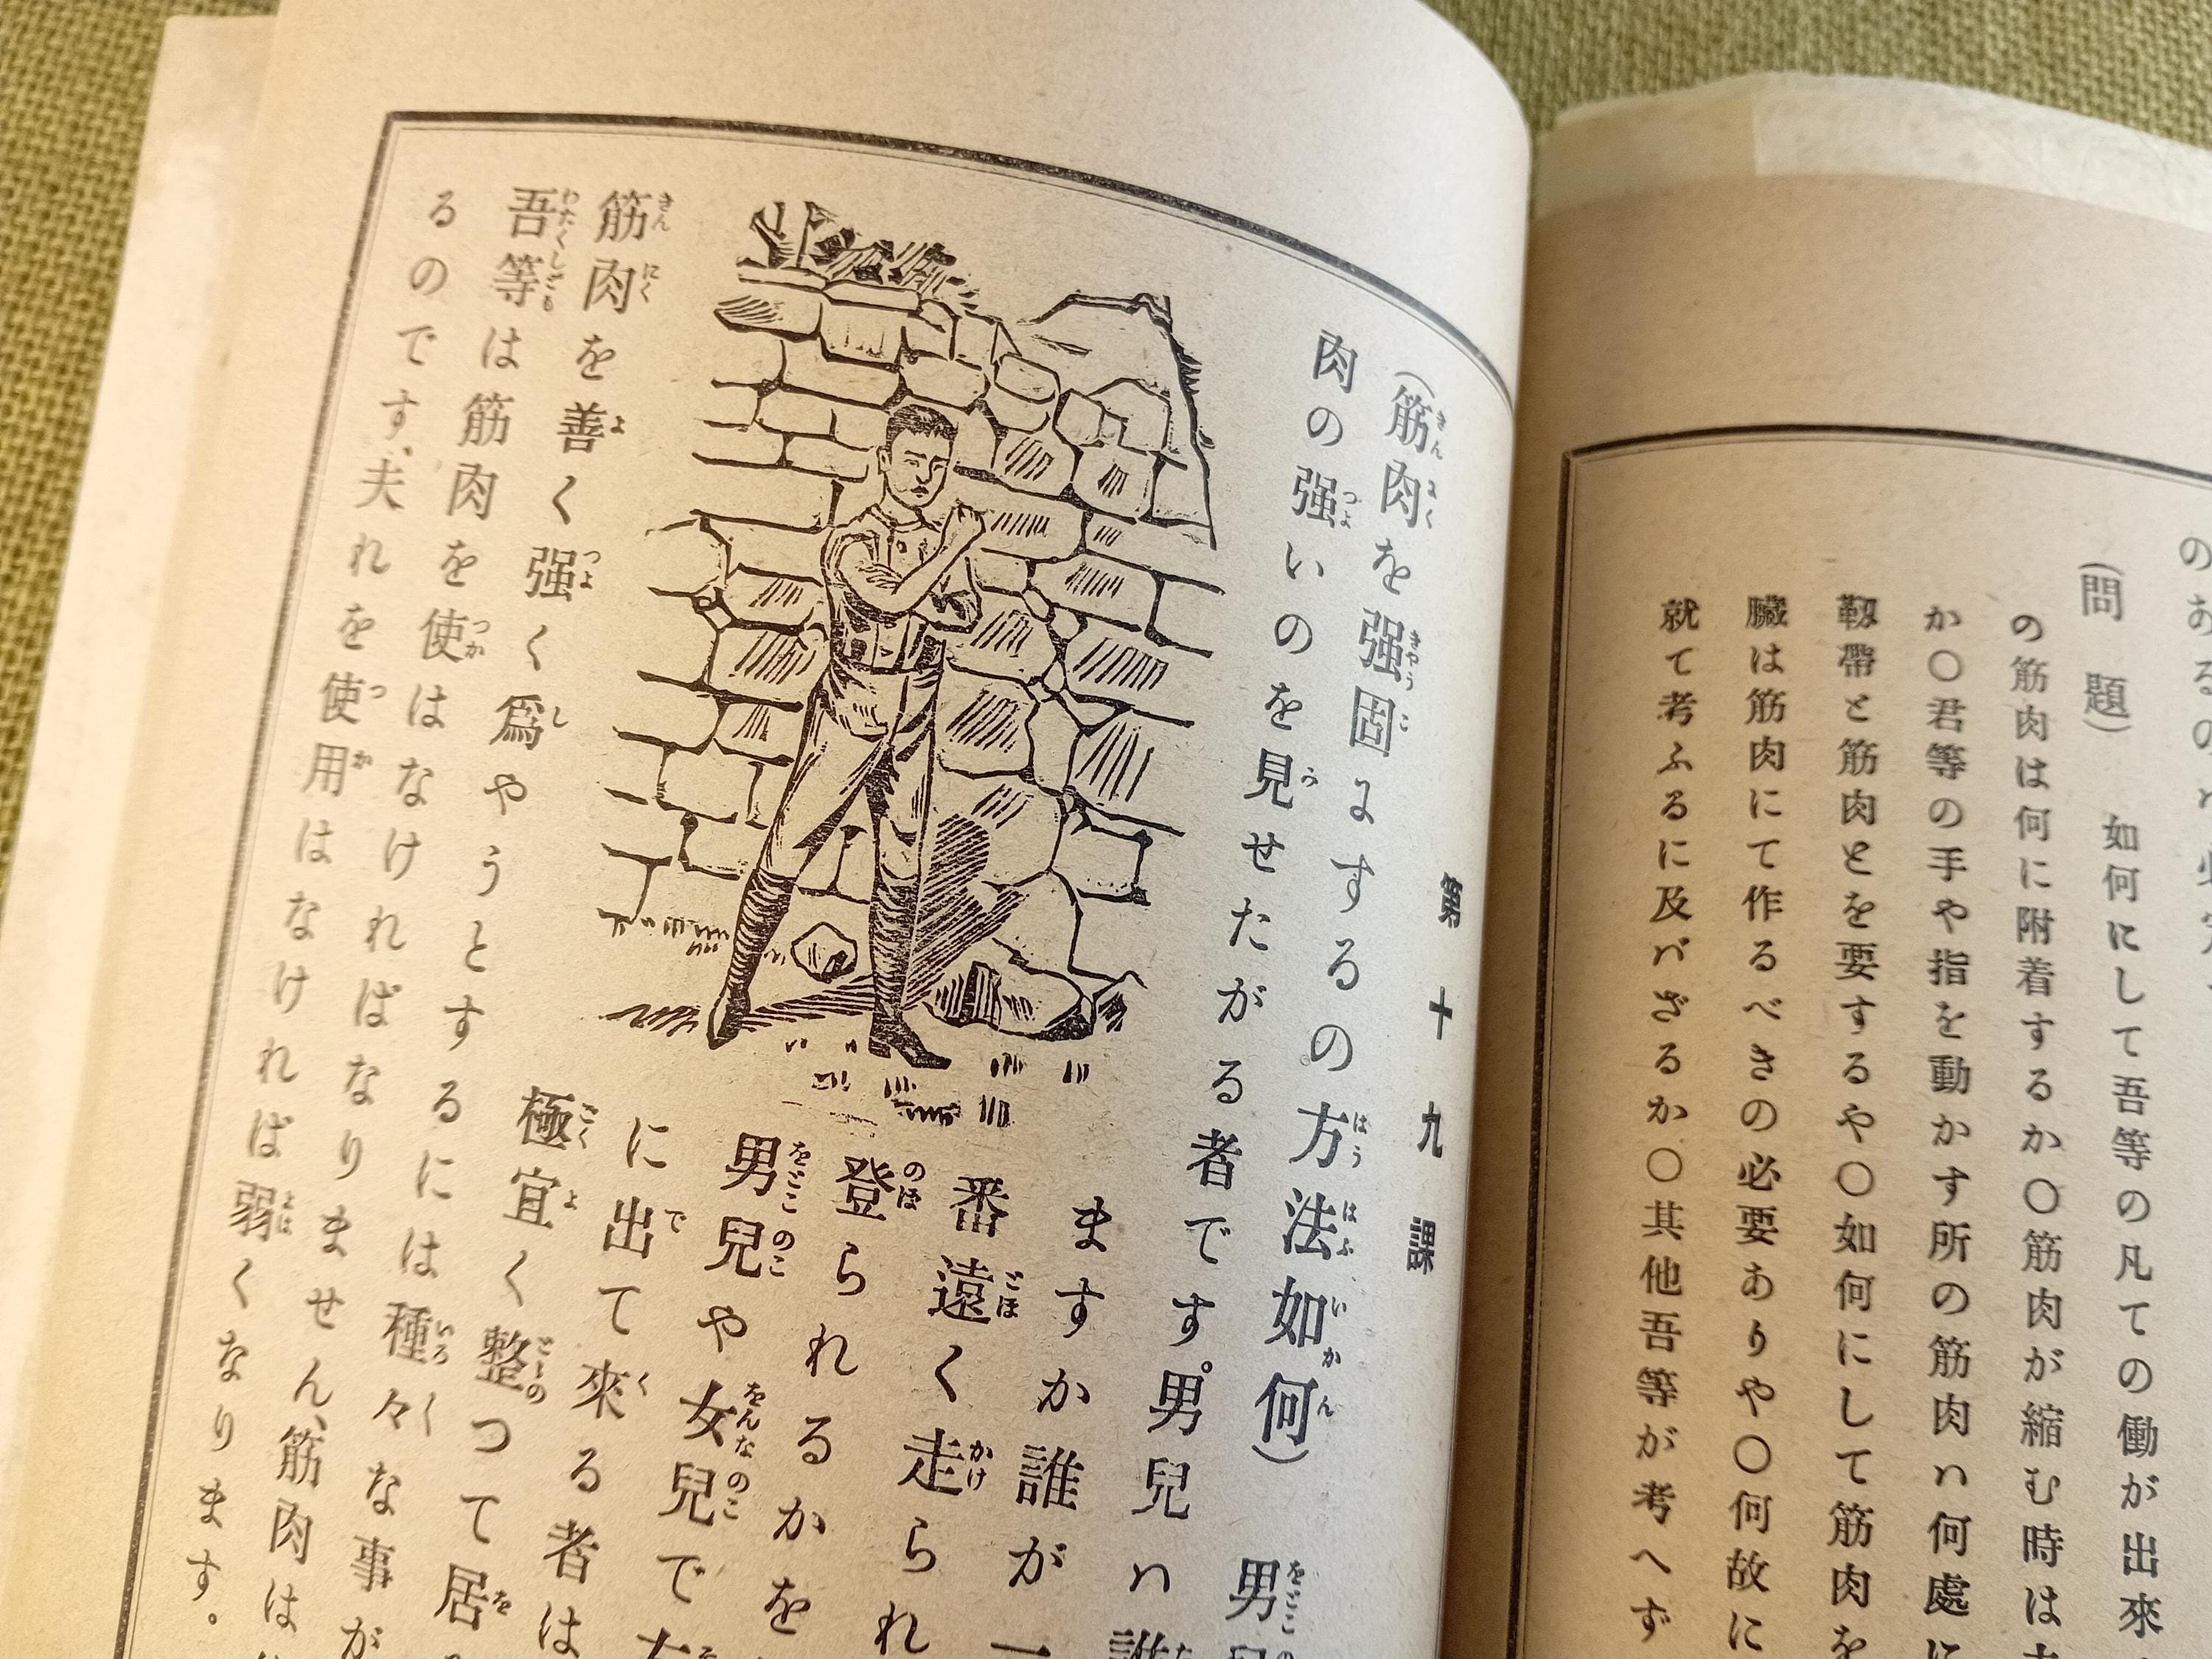 のおるの
(問題) 如何にして吾等の凡ての働が出來
の筋肉は何に附着するか〇筋肉が縮む時は
か〇君等の手や指を動かす所の筋肉ハ何處に
靱帶と筋肉とを要するや〇如何にして筋肉を
臟は筋肉にて作るべきの必要ありや〇何故に
就て考ふるに及バざるか〇其他吾等が考へず
第十九課
(筋肉を强固にするの方法如何) 男兒
肉の强いのを見せたがる者です。男兒ハ誰
ますか誰が一
番遠く走られ
登られるかを
男兒や女兒で女
に出て來る者は
極宜く整つて居る
筋肉を善く强く爲やうとするには種々な事が
吾等は筋肉を使はなければなりません、筋肉は
るのです、夫れを使用はなければ弱くなります。